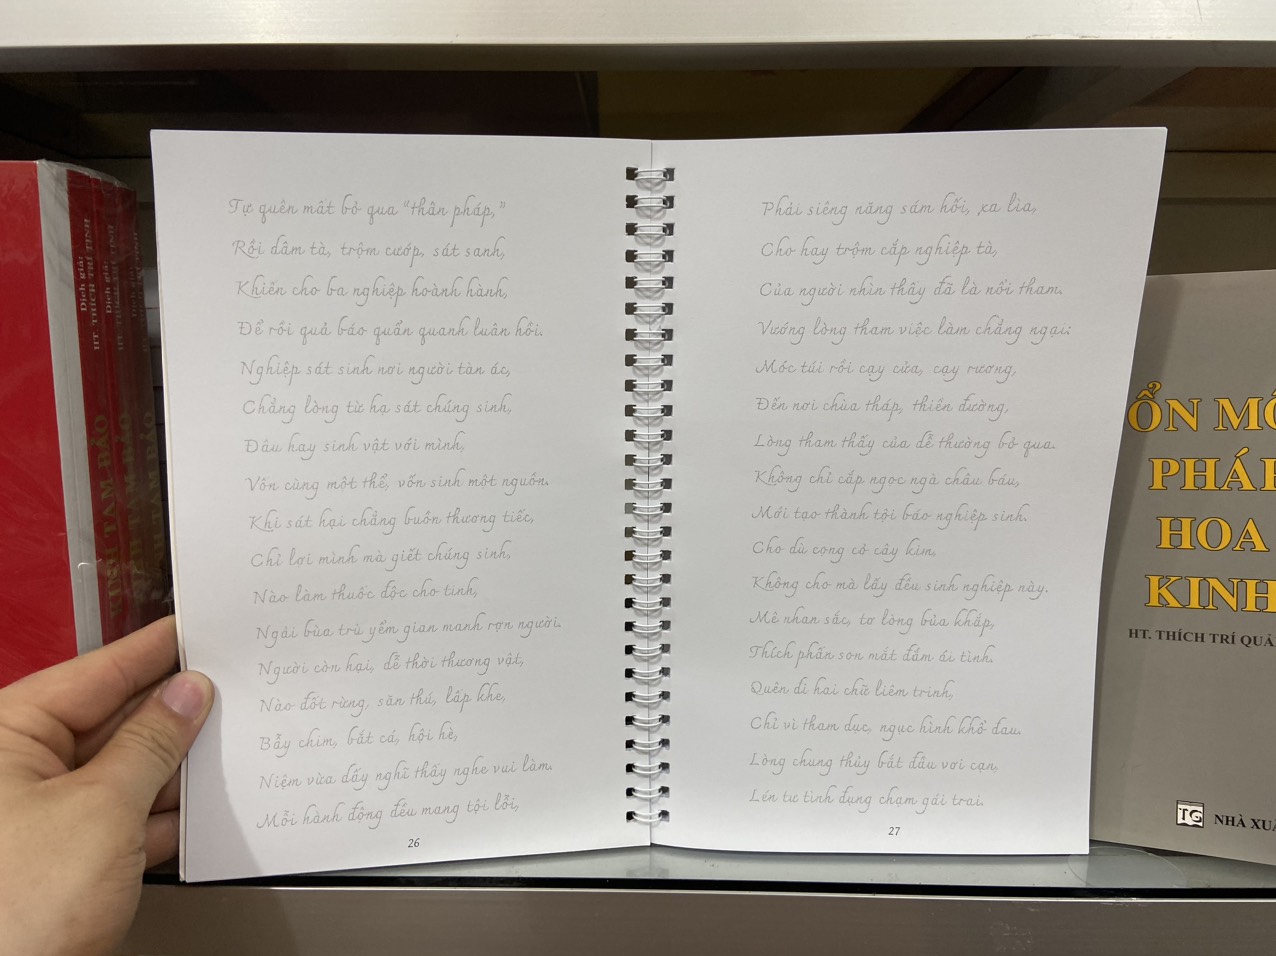 Tự quên mất bỏ qua “thân pháp,”
Rồi dâm tà, trộm cướp, sát sanh,
Khiến cho ba nghiệp hoành hành,
Để rồi quả báo quẩn quanh luân hồi.
Nghiệp sát sinh nơi người tàn ác,
Chẳng lòng từ hạ sát chúng sinh,
Đâu hay sinh vật với mình,
Vốn cùng một thể, vốn sinh một nguồn.
Khi sát hại chẳng buồn thương tiếc,
Chỉ lợi mình mà giết chúng sinh,
Nào làm thuốc độc cho tinh,
Ngải bùa trù yếm gian manh rợn người.
Người còn hại, dễ thời thương vật,
Nào đốt rừng, săn thú, lấp khe,
Bẫy chim, bắt cá, hội hè,
Niệm vừa dấy nghĩ thấy nghe vui làm.
Mỗi hành động đều mang tội lỗi,
26
Phải siêng năng sám hối, xa lìa,
Cho hay trộm cắp nghiệp tà,
Của người nhìn thấy đã là nổi tham.
Vướng lòng tham việc làm chẳng ngại:
Móc túi rồi cạy cửa, cạy rương,
Đến nơi chùa tháp, thiền đường,
Lòng tham thấy của dễ thường bỏ qua.
Không chỉ cắp ngọc ngà châu báu,
Mới tạo thành tội báo nghiệp sinh.
Cho dù cọng cỏ cây kim,
Không cho mà lấy đều sinh nghiệp này.
Mê nhan sắc, tơ lòng bủa khắp,
Thích phấn son mắt đắm ái tình.
Quên đi hai chữ liêm trinh,
Chỉ vì tham dục, ngục hình khổ đau.
Lòng chung thủy bắt đầu vơi cạn,
Lén tư tình đụng chạm gái trai.
27
Dịch giả:
HT. THÍCH TRÍ TỊNH
Dịch giả:
TAM BẢO
TAM BẢO
TAM BẢO
ỔN MÔ
PHÁP
HOA
KINH
HT. THÍCH TRÍ QUẢ
TG
NHÀ XUẤ